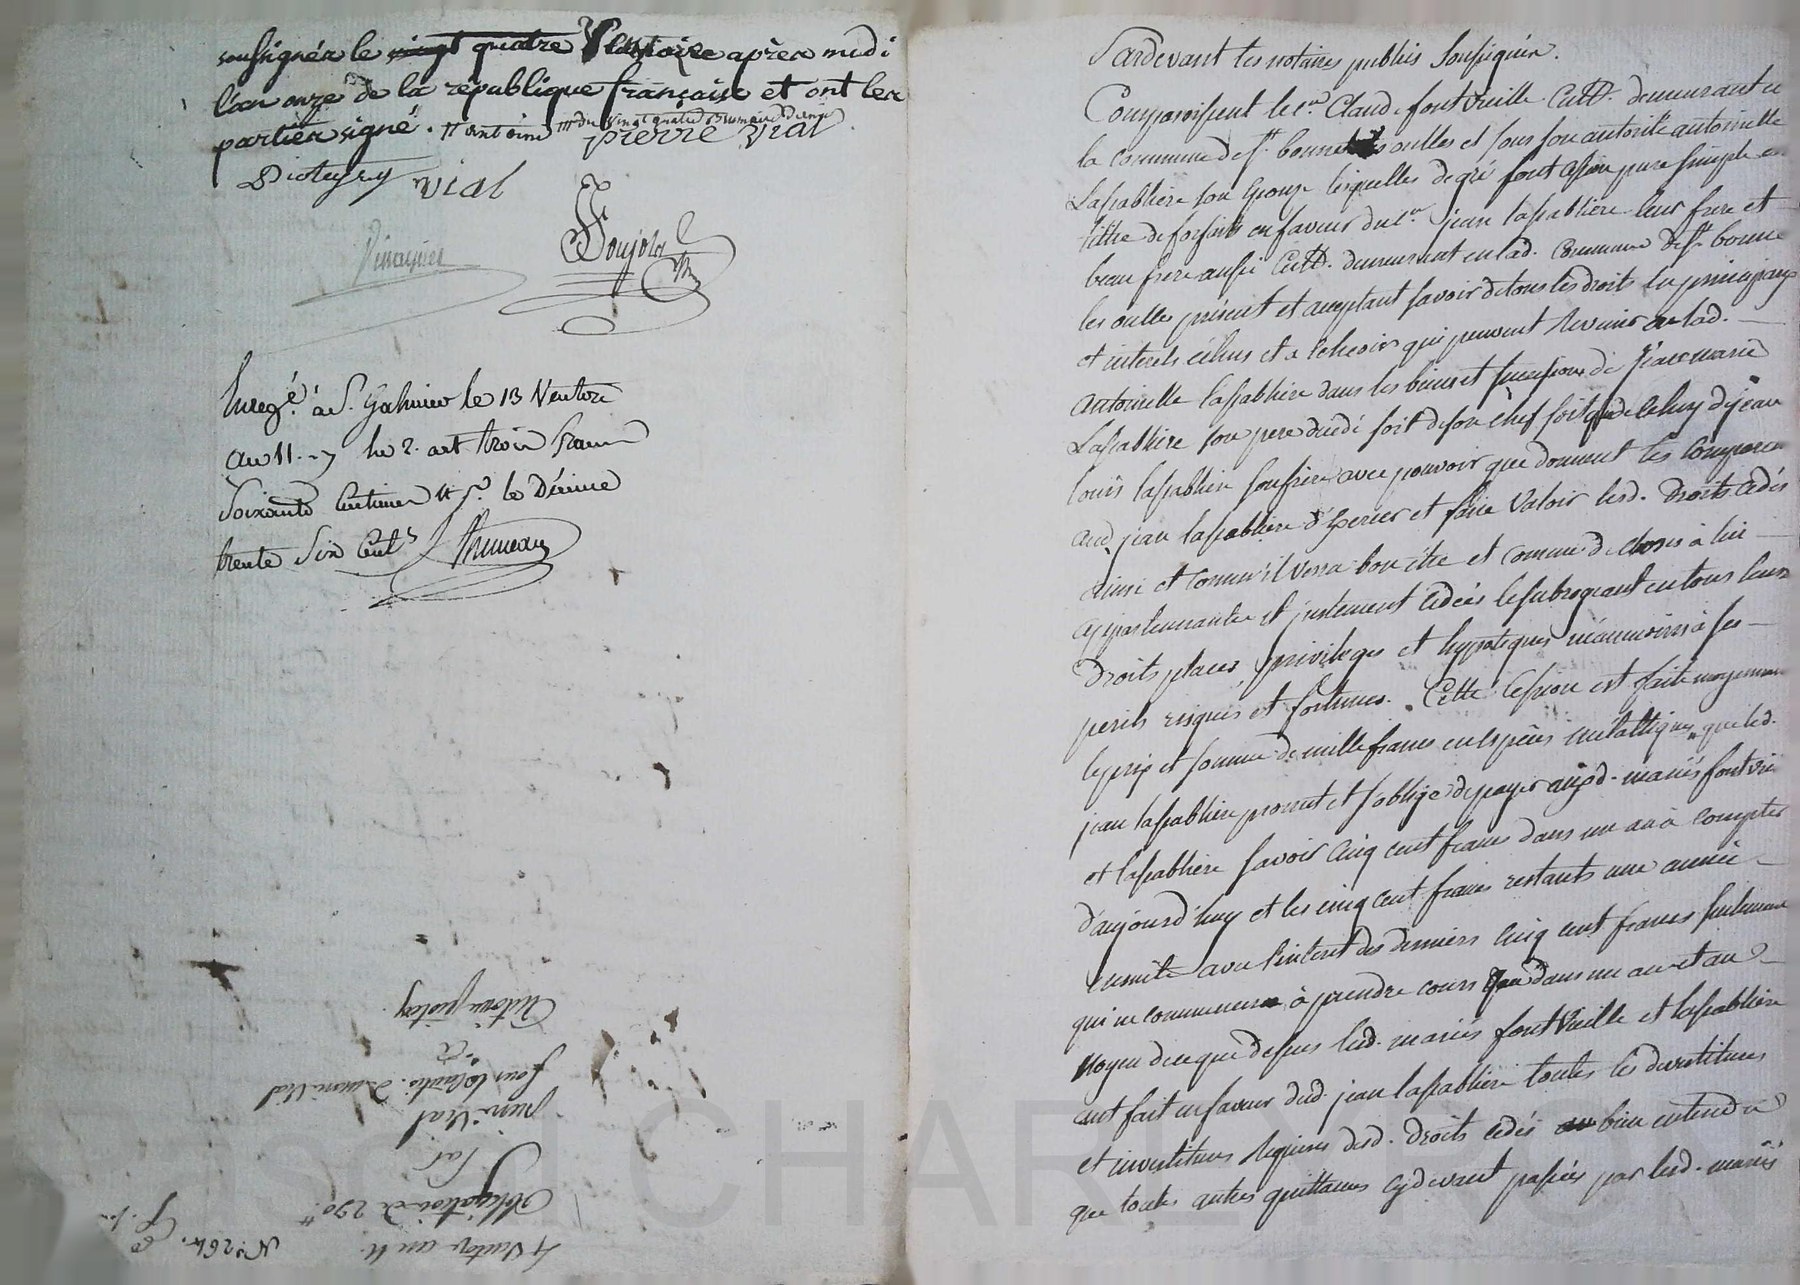 soussignés le vingt quatre Ventose après midi
l'an onze de la république française et ont les
parties signé. Antoine du vingt quatre Brumaire
pierre Vial
Vial
Vinagier
Soujola
Enregé. à St. Galmier le 13 Ventose
an 11 he 2. art trois francs
Soixante Centimes le Décime
trente Six Cent.
Pardevant les notaires publics Soussignés.
Comparoissent le Cen. Claude fontvieille Cult. demeurant en
la commune de St. bonnet les oulles et sous son autorité antoinette
Lassablière son Epouse lesquelles de gré font cession pure simple en
tittre de forfait en faveur du Cen. jean lassablière leur frere et
beau frere aussi Cult. demeurant en lad. Commune de St. bonnet
les oulles présent et acceptant savoir de tous les droits en principaux
et interets échus et a echeoir qui peuvent Revenir a lad.
antoinette lassablière dans les biens et successions de jean marie
Lassablière son pere décédé soit de son chef soit de celuy de jean
louis lassablière son frère avec pouvoir que donnent les comparants
aud. jean lassablière d'exercer et faire valoir lesd. Droits cédés
ainsi et comme il verra bon être et comme de choses à lui
appartenantes et justement cédées le subrogeant en tous leurs
Droits places, privileges et hypoteques néanmoins à ses
perils risques et fortunes. Cette Cession est faite moyennant
le prix et somme de mille francs en espèces métalliques, que led.
jean lassablière promet et s'oblige de payer auxd. mariés fontvie
et lassablière savoir cinq cent francs dans un an à compter
d'aujourd'huy et les cinq cent francs restants une année
ensuite avec l'interet des derniers cinq cent francs seulement
qui ne commencera à prendre cours que dans un an et au
moyen de ce que dessus lesd. mariés fontvieille et lassablière
ont fait en faveur dud. jean lassablière toutes les devestitures
et investitures requises desd. droits cédés bien entendu
que toutes autres quittances cy devant passées par lesd. mariés
4 Ventose an 11.
Obligation de 290 tt
Par
pierre Vial
pour
Antoine
No. 264.
CHAREYRON